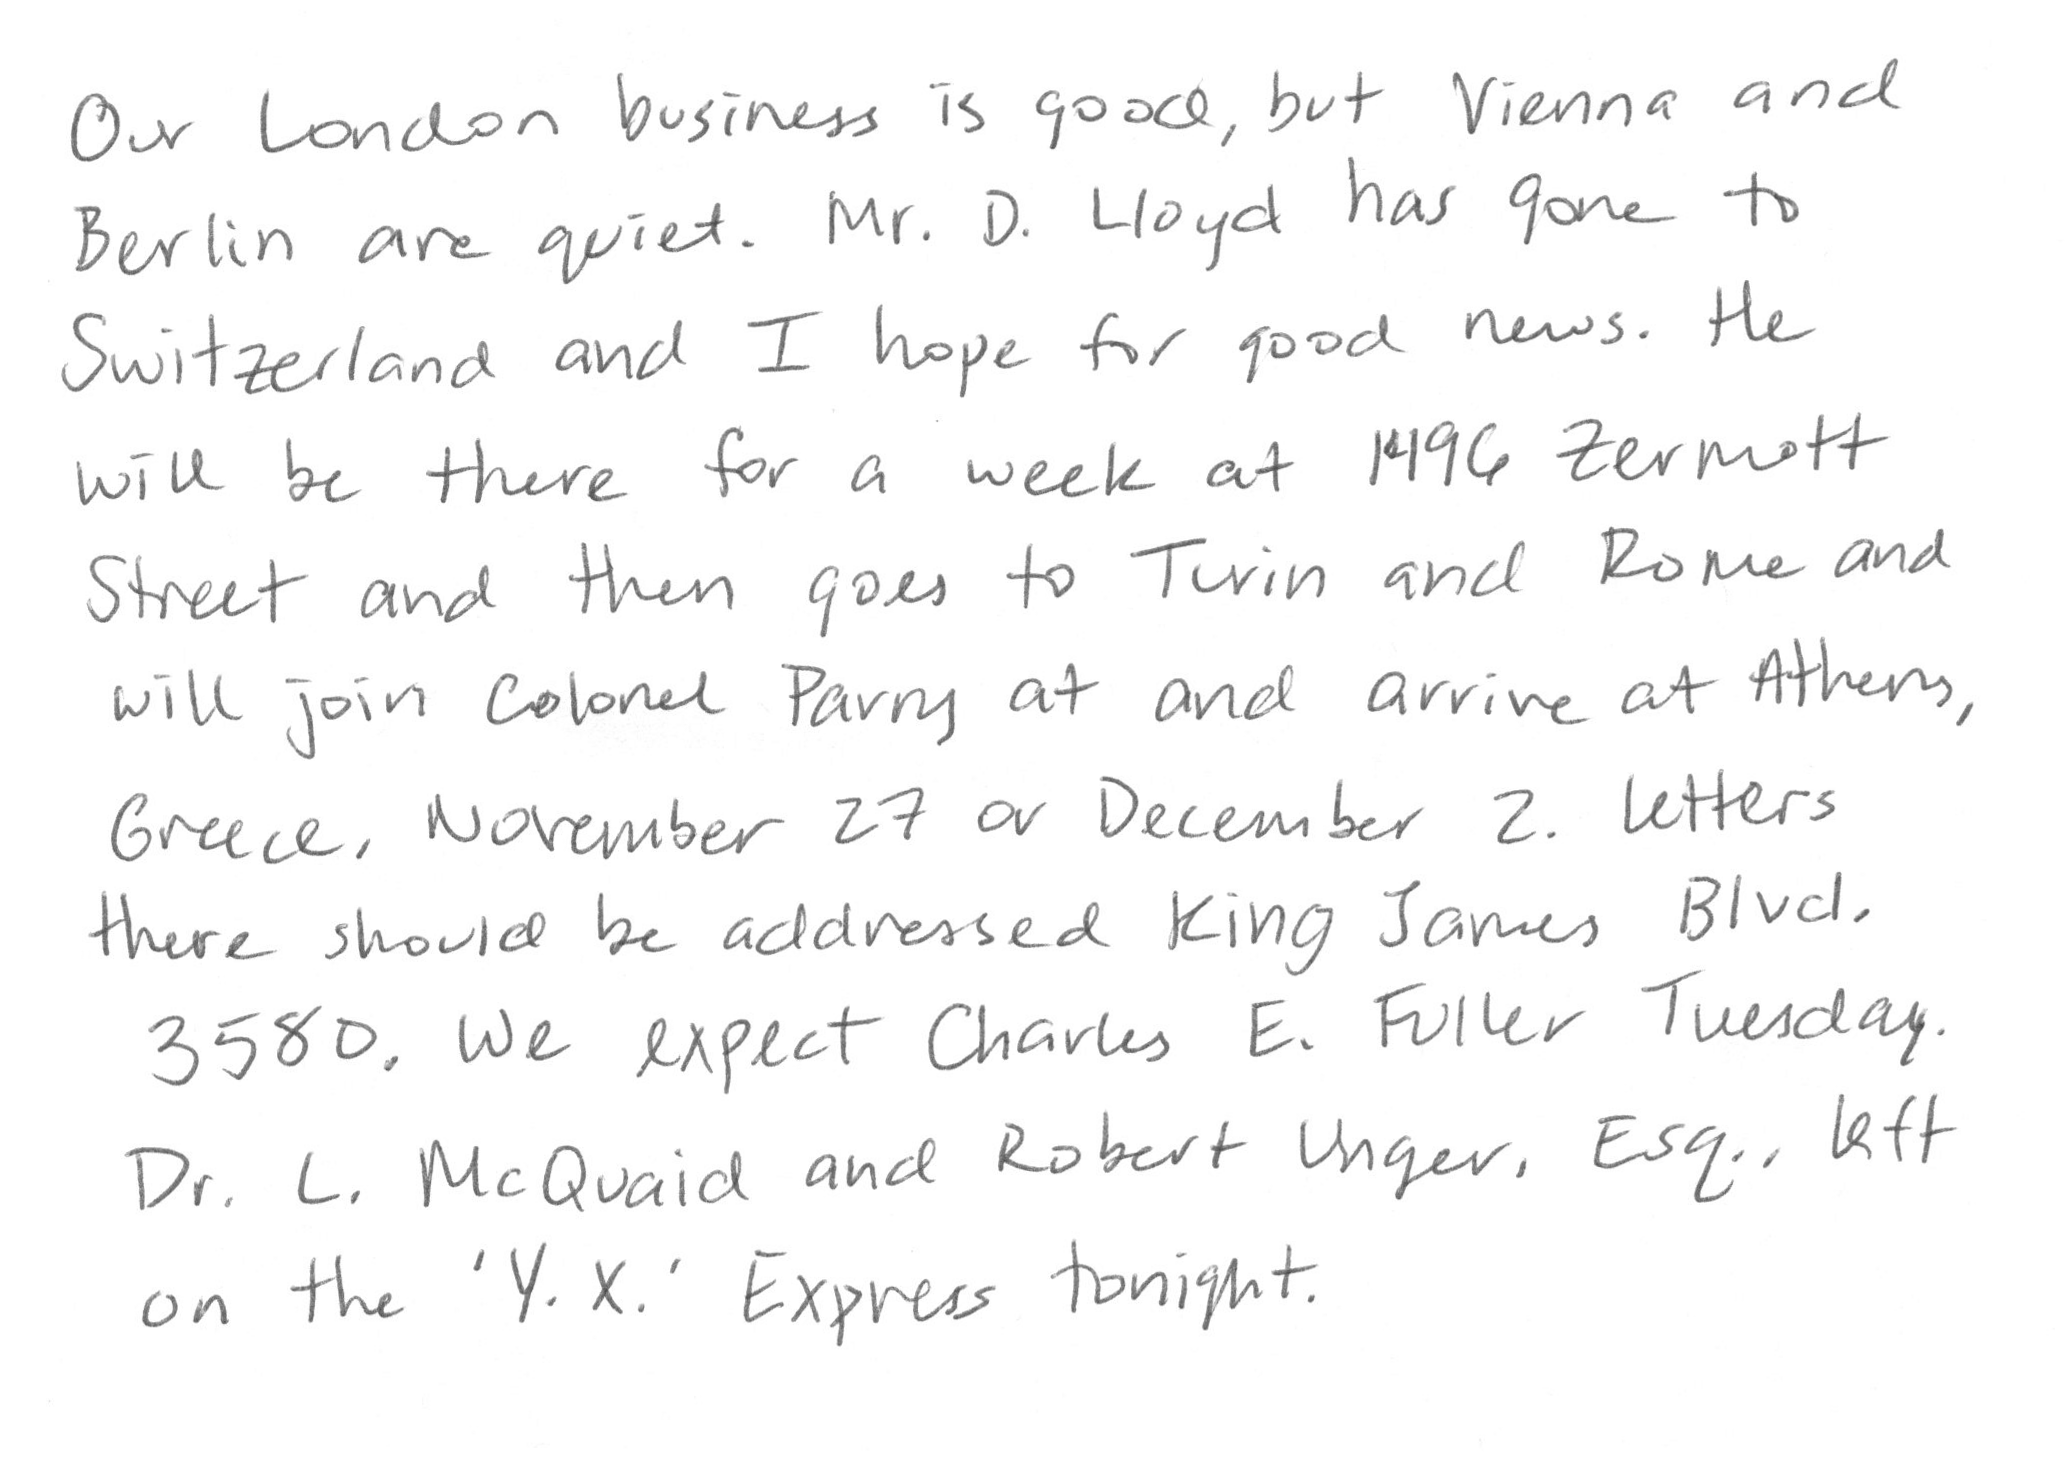 Our London business is good, but Vienna and
Berlin are quiet. Mr. D. Lloyd has gone to
Switzerland and I hope for good news. He
will be there for a week at 1496 Zermott
Street and then goes to Turin and Rome and
will join Colonel Parry at and arrive at Athens,
Greece, November 27 or December 2. Letters
there should be addressed King James Blvd.
3580. We expect Charles E. Fuller Tuesday.
Dr. L. McQuaid and Robert Unger, Esq., left
on the 'Y. X.' Express tonight.